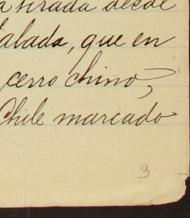 a tirada desde
alada, que en
cerro chino,
Chile marcado
3